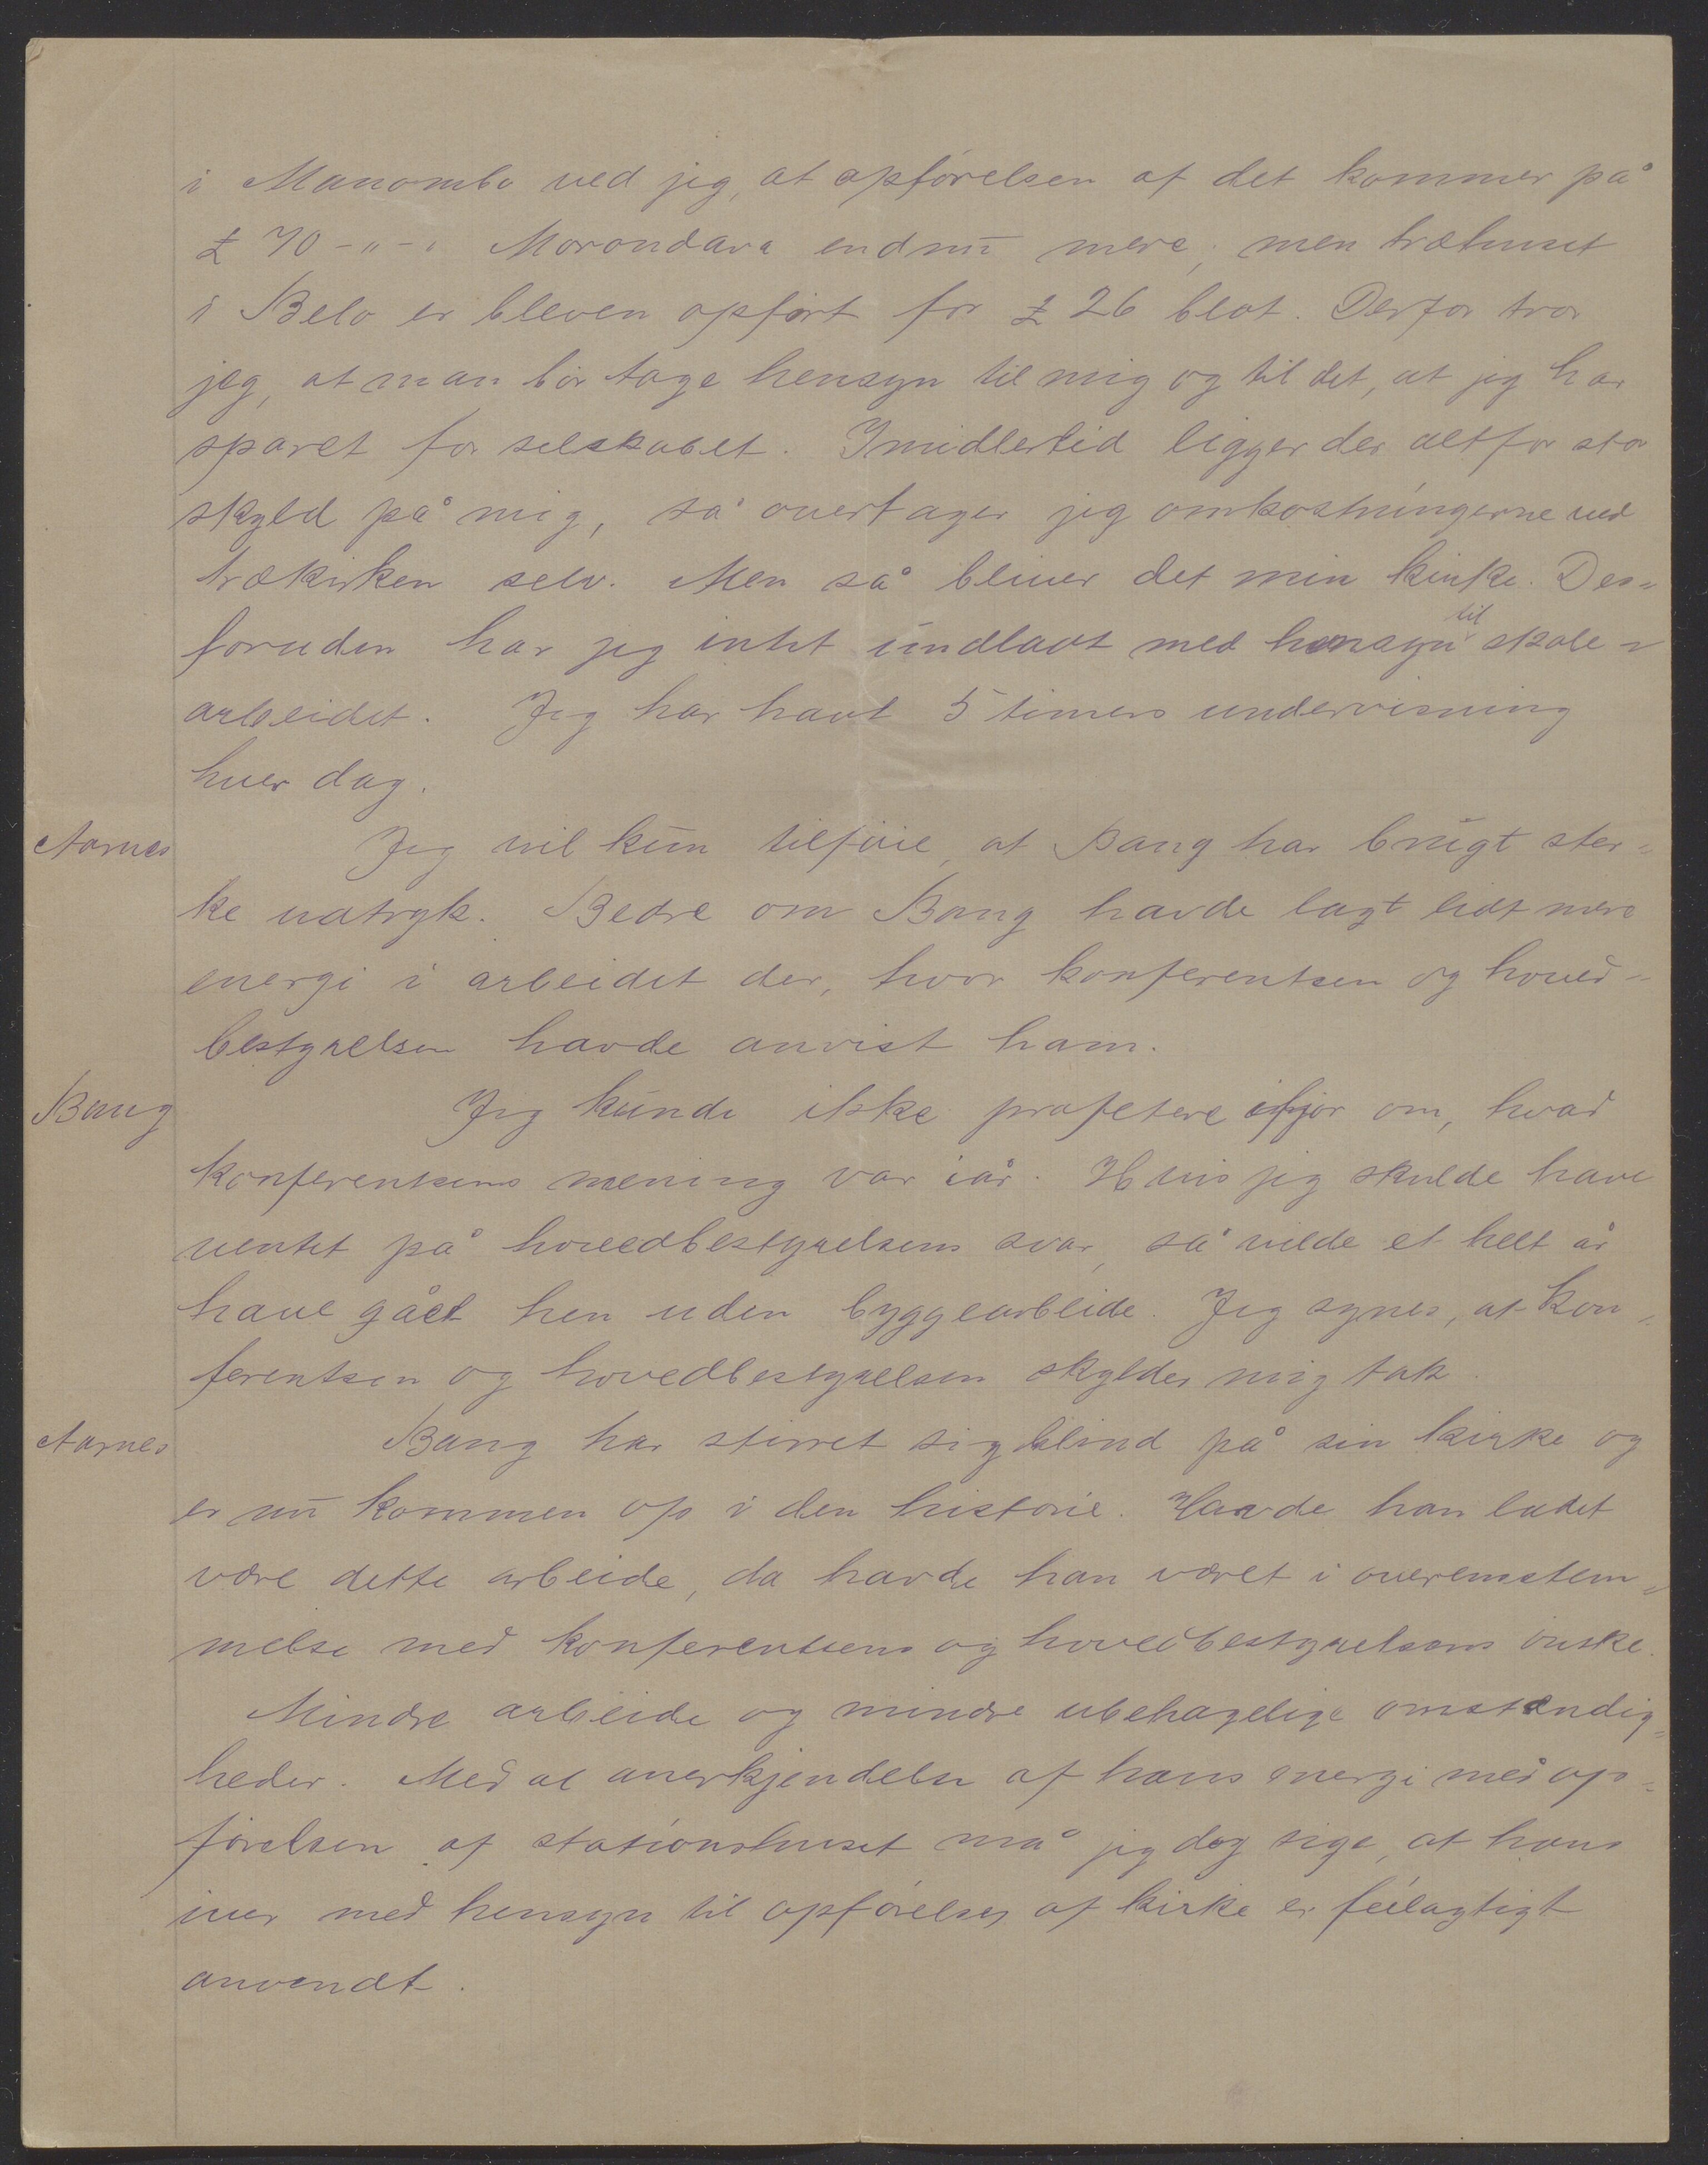 i Manombo ved jeg, at opførelsen af det kommer på
£ 70 -"-" Morondava endnu mere; men træhuset
i Belo er bleven opført for £ 26 blot. Derfor tror
jeg, at man bør tage hensyn til mig og til det, at jeg har
sparet for selskabet. Imidlertid ligger der altfor stor
skyld på mig, så overtager jeg omkostningerne ved
trækirken selv. Men så bliver det min kirke. Des-
foruden har jeg intet undladt med hensyn til skole-
arbeidet. Jeg har havt 5 timers undervisning
hver dag.
Aarnes Jeg vil kun tilføie, at Bang har brugt ster-
ke udtryk. Bedre om Bang havde lagt lidt mere
energi i arbeidet der, hvor konferentsen og hoved-
bestyrelsen havde anvist ham.
Bang Jeg kunde ikke profetere ifjor om, hvad
konferentsens mening var iår. Hvis jeg skulde have
ventet på hovedbestyrelsens svar, så vilde et helt år
have gået hen uden byggearbeide. Jeg synes, at kon-
ferentsen og hovedbestyrelsen skylder mig tak.
Aarnes Bang har stirret sig blind på sin kirke og
er nu kommen op i den historie. Havde han ladet
være dette arbeide, da havde han været i overenstem-
melse med konferentsens og hovedbestyrelsens ønske.
Mindre arbeide og mindre ubehagelige omstændig-
heder. Med al anerkjendelse af hans energi med op-
førelsen af stationshuset må jeg dog sige, at hans
iver med hensyn til opførelse af kirke er feilagtigt
anvendt.